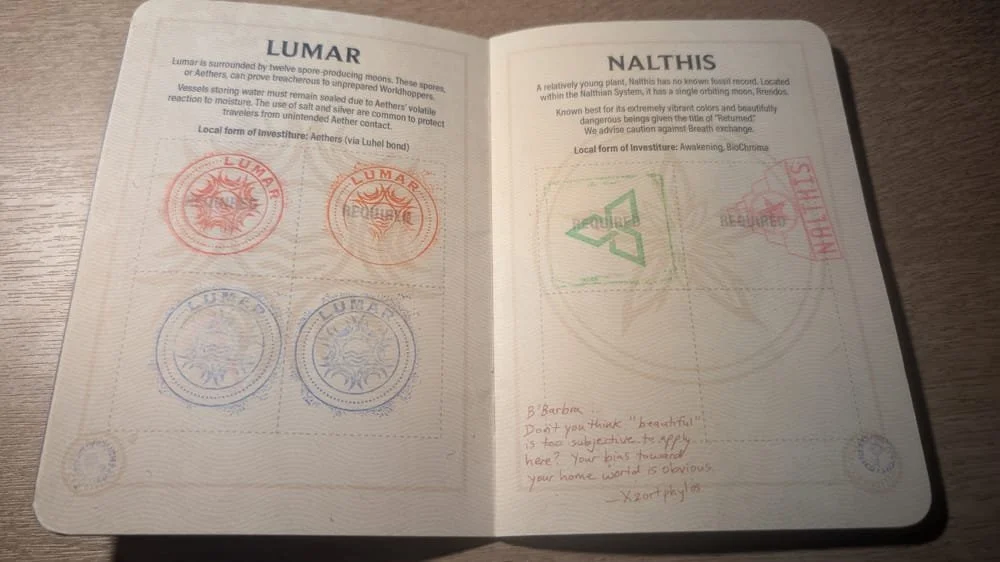 LUMAR
Lumar is surrounded by twelve spore-producing moons. These spores,
or Aethers, can prove treacherous to unprepared Worldhoppers.
Vessels storing water must remain sealed due to Aethers' volatile
reaction to moisture. The use of salt and silver are common to protect
travelers from unintended Aether contact.
Local form of Investiture: Aethers (via Luhel bond)
LUMAR
REQUIRED
LUMAR
REQUIRED
LUMAR
LUMAR
NALTHIS
A relatively young plant, Nalthis has no known fossil record. Located
within the Nalthian System, it has a single orbiting moon, Rrendos.
Known best for its extremely vibrant colors and beautifully
dangerous beings given the title of "Returned."
We advise caution against Breath exchange.
Local form of Investiture: Awakening, BioChroma
REQUIRED
REQUIRED
B'Barbra
Don't you think "beautiful"
is too subjective to apply
here? Your bias toward
your home world is obvious.
—Xzortphylos